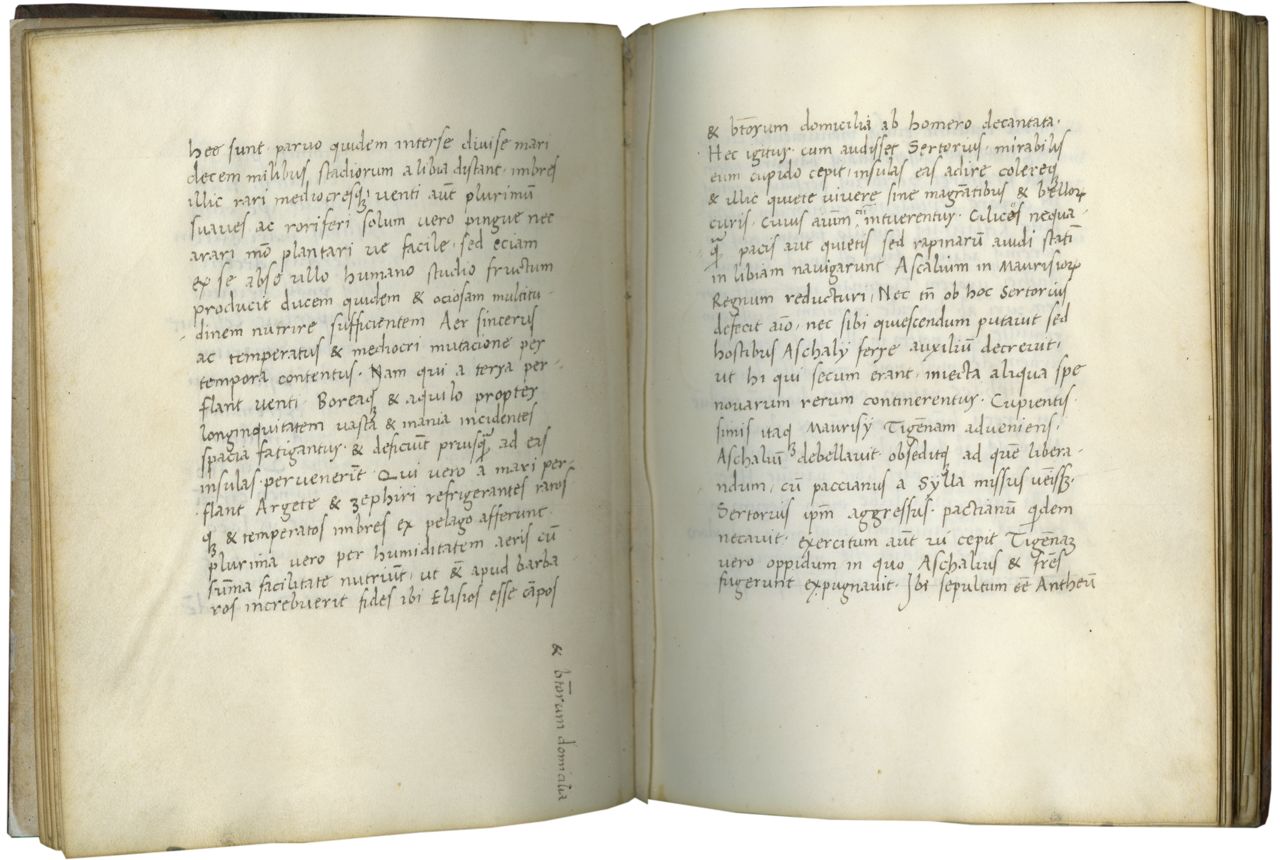 hee sunt parvo quidem interse divise mari
decem milibus stadiorum a libia distant · imbres
illic rari mediocresqꝫ venti aūt plurimū
suaves ac roriferi solum vero pingue nec
arari mō plantari ve facile · sed eciam
ex se absqꝫ ullo humano studio fructum
producit ducem quidem & ociosam multitu-
dinem nutrire sufficientem Aer sincerus
ac temperatus & mediocri mutacione per
tempora contentus · Nam qui a terra per-
flant venti · Boreasqꝫ & aquilo propter
longinquitatem vasta & inania incidentes
spacia fatigantur · & deficiūt priusqꝫ̄ ad eas
insulas pervenerīt · Qui vero a mari per-
flant Argete & zephiri refrigerantes raros
qꝫ & temperatos imbres ex pelago afferunt
plurima vero per humiditatem aeris cū
sūma facilitate nutriūt · ut & apud barba
ros increbuerit fides ibi Elisios esse cāpos
& btōrum domicilia
& btōrum domicilia ab homero decantata ·
Hec igitur cum audisset Sertorius · mirabilis
eum cupido cepit · insulas eas adire colereqꝫ
& illic quiete vivere sine magrātibus & bellorꝝ
curis · Cuius aīum intuerentur · Cilices nequa-
qꝫ̄ pacis aut quietis sed rapinarū avidi statī
in libiam navigarunt Ascalium in Maurisiorꝝ
Regnum reducturi · Nec tn̄ ob hoc Sertorius
defecit aīo · nec sibi quiescendum putavit sed
hostibus Aschalij ferre auxiliū decrevit ·
ut hi qui secum erant · iniecta aliqua spe
novarum rerum continerentur · Cupientis-
simis itaqꝫ Maurisij Tigēnam adveniens ·
Aschaliū debellavit obseditqꝫ ad quē libera-
ndum · cū paccianus a Sylla missus vēisset ·
Sertorius ipm̄ aggressus · pactianū qidem
necavit · exercitum aūt in cepit Tigēnaꝫ
vero oppidum in quo Aschalius & frēs
fugerunt expugnavit · Ibi sepultum eē Antheū